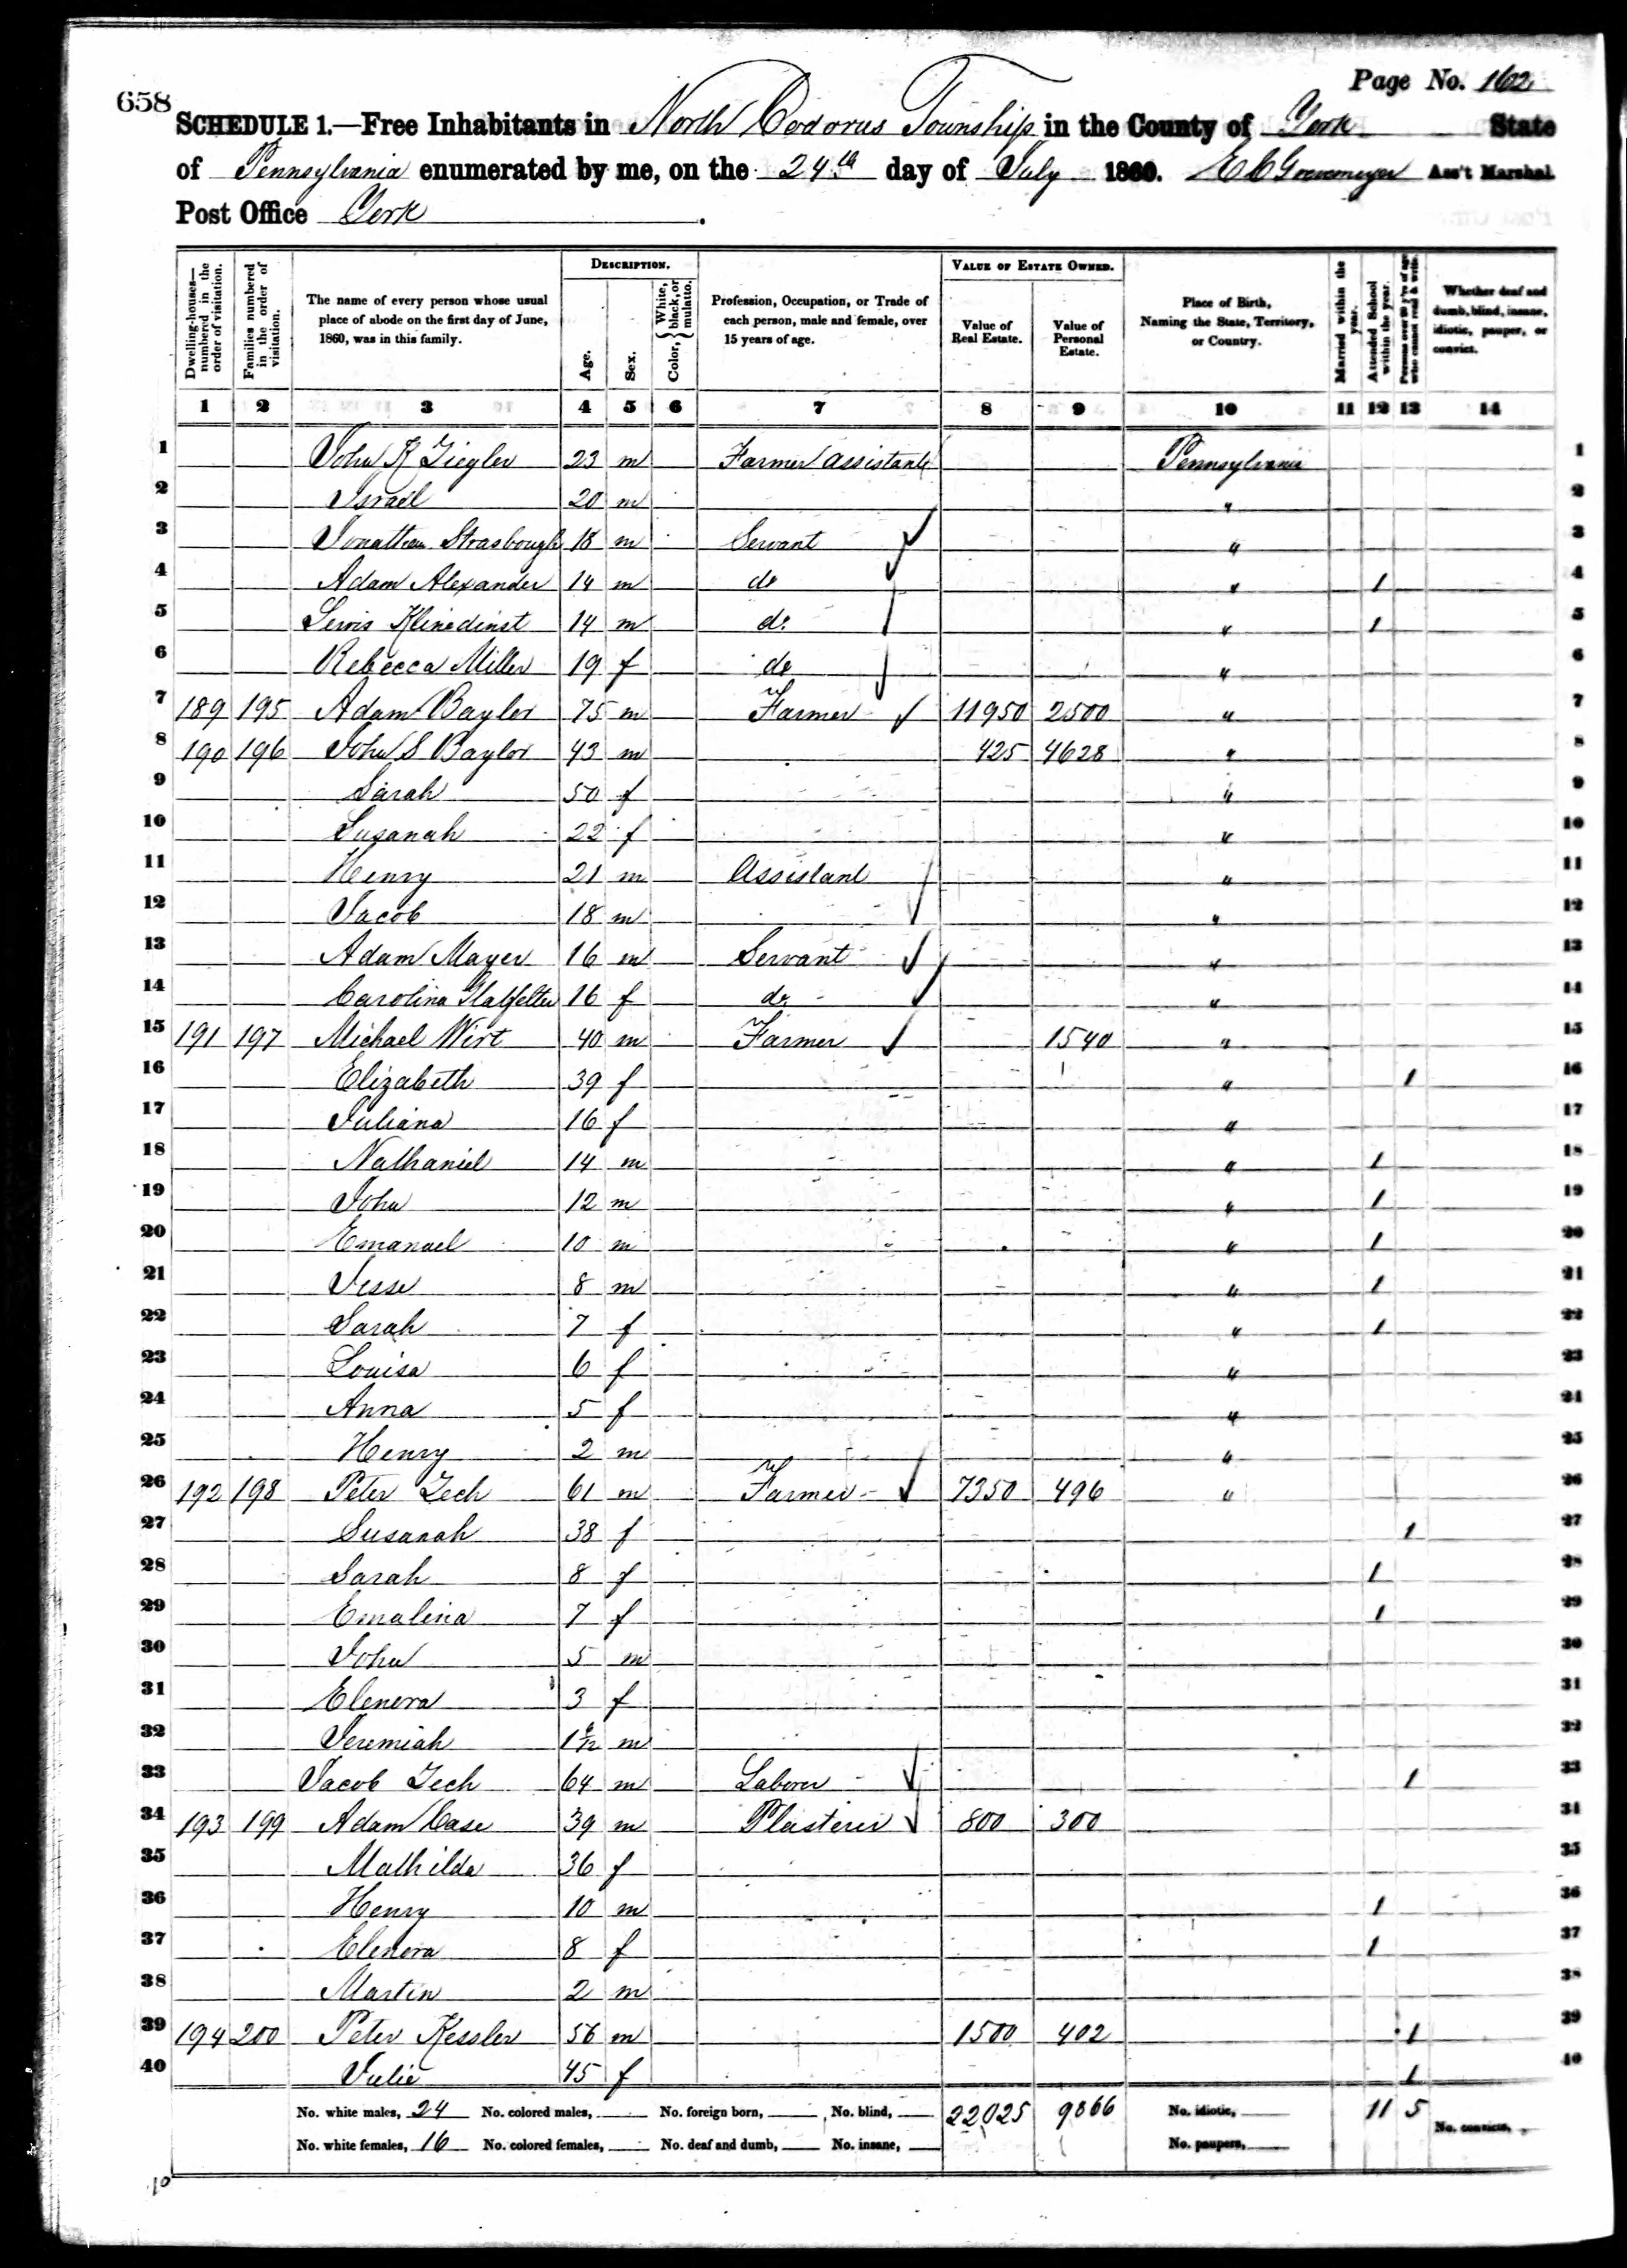 Page No. 162
658
SCHEDULE 1.—Free Inhabitants in North Codorus Township in the County of York State
of Pennsylvania enumerated by me, on the 24th day of July 1860. Ass't Marshal.
Post Office York.
Dwelling-houses—numbered in the order of visitation. Families numbered in the order of visitation. The name of every person whose usual place of abode on the first day of June, 1860, was in this family. DESCRIPTION. Age. Sex. Color, { White, black, or mulatto. Profession, Occupation, or Trade of each person, male and female, over 15 years of age. VALUE OF ESTATE OWNED. Value of Real Estate. Value of Personal Estate. Place of Birth, Naming the State, Territory, or Country. Married within the year. Attended School within the year. Persons over 20 y'rs of age who cannot read & write. Whether deaf and dumb, blind, insane, idiotic, pauper, or convict.
1 2 3 4 5 6 7 8 9 10 11 12 13 14
1 John K Ziegler 23 m Farmer assistant Pennsylvania 1
2 Israel 20 m " 2
3 Jonathan Strasbough 18 m Servant " 3
4 Adam Alexander 14 m do " 1 4
5 Lewis Klinedinst 14 m do " 1 5
6 Rebecca Miller 19 f do " 6
7 189 195 Adam Baylor 75 m Farmer 11950 2500 " 7
8 190 196 John S Baylor 43 m 425 4628 " 8
9 Sarah 50 f " 9
10 Susanah 22 f " 10
11 Henry 21 m Assistant " 11
12 Jacob 18 m " 12
13 Adam Mayer 16 m Servant " 13
14 Carolina Glatfelter 16 f do " 14
15 191 197 Michael Wirt 40 m Farmer 1540 " 15
16 Elizabeth 39 f " 1 16
17 Juliana 16 f " 17
18 Nathaniel 14 m " 1 18
19 John 12 m " 1 19
20 Emanuel 10 m " 1 20
21 Jesse 8 m " 1 21
22 Sarah 7 f " 1 22
23 Louisa 6 f " 23
24 Anna 5 f " 24
25 Henry 2 m " 25
26 192 198 Peter Zech 61 m Farmer 7350 496 " 26
27 Susanah 38 f 1 27
28 Sarah 8 f 1 28
29 Emalina 7 f 1 29
30 John 5 m 30
31 Elenora 3 f 31
32 Jeremiah 1 m 32
33 Jacob Zech 64 m Laborer 1 33
34 193 199 Adam Case 39 m Plasterer 800 300 34
35 Mathilda 36 f 35
36 Henry 10 m 1 36
37 Elenora 8 f 1 37
38 Martin 2 m 38
39 194 200 Peter Kessler 56 m 1500 402 1 39
40 Julie 45 f 1 40
No. white males, 24 No. colored males, No. foreign born, No. blind, 22025 9866 No. idiotic, 11 5 No. convicts,
No. white females, 16 No. colored females, No. deaf and dumb, No. insane, No. paupers,